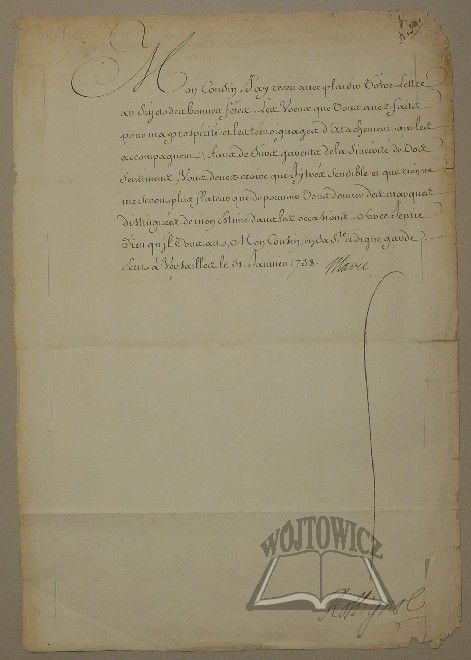 N. 50.
Mon Cousin, J'ay receu avec plaisir Vôtre Lettre
au Sujet des bonnes fêtes. Les Voeux que Vous avez faits
pour ma prosperité et les témoignages d'attachement qui les
accompagnent, étant de Sûrs garents de la Sincérité de Vos
Sentimens, Vous devez croire que J'y suis Sensible et que rien ne
me Sera plus flateur que de pouvoir Vous donner des marques
distinguées de mon estime dans les occasions. Sur ce Je prie
Dieu qu'il Vous ait, Mon Cousin, en Sa Ste. et digne garde
Ecrit à Versailles le 31. Janvier 1738. Marie
WÓJTOWICZ
Rossignol